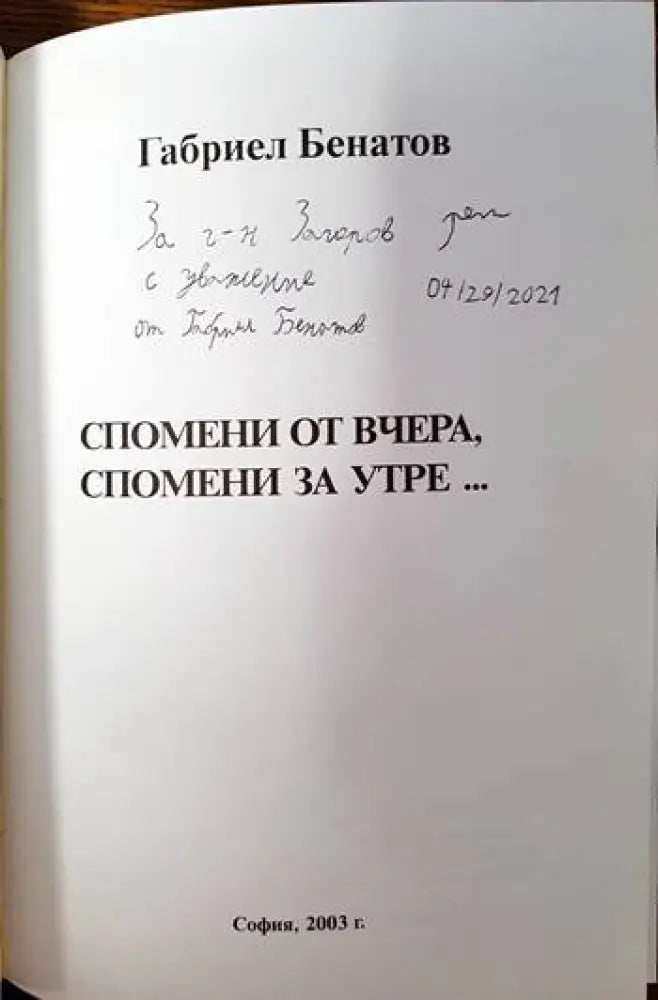 Габриел Бенатов
За г-н Загоров
с уважение 04/29/2021
от Габриел Бенатов
СПОМЕНИ ОТ ВЧЕРА,
СПОМЕНИ ЗА УТРЕ ...
София, 2003 г.